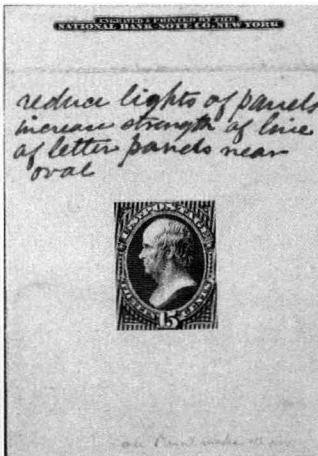 ENGRAVED & PRINTED BY THE
NATIONAL BANK NOTE CO. NEW YORK
reduce lights of panels
increase strength of line
of letter panels near
oval
U.S. POSTAGE
FIFTEEN CENTS
15